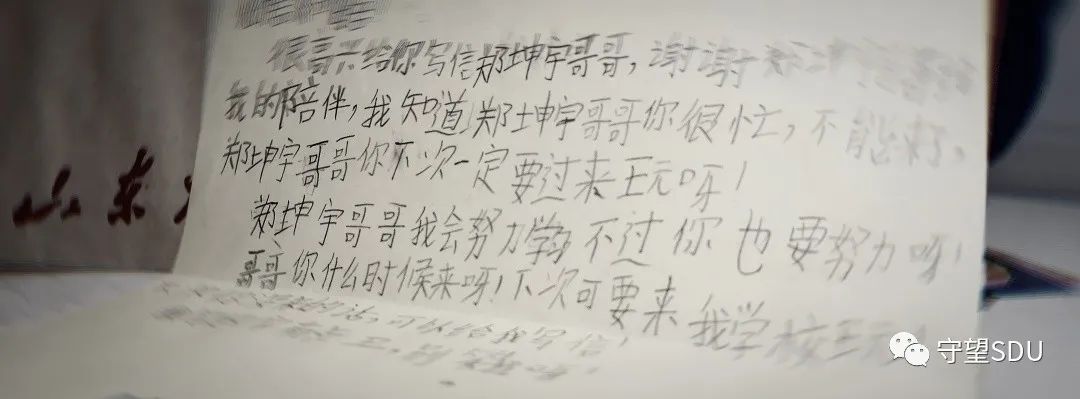 很高兴给你写信郑坤宇哥哥，谢谢
我的陪伴，我知道郑坤宇哥哥你很忙，不能来，
郑坤宇哥哥你下次一定要过来玩呀！
郑坤宇哥哥我会努力学习不过你也要努力呀！
哥哥你什么时候来呀！下次可要来我学校玩
可以给我写信，
山东
守望SDU